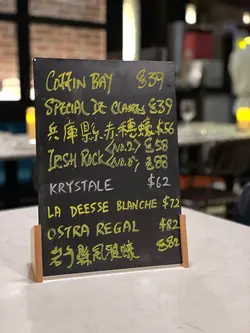 COFFIN BAY $39
SPECIAL DE CLAIRES $39
兵庫縣赤穗蠔 $56
IRISH ROCK <NO.2> $58
<NO.0> $88
KRYSTALE $62
LA DEESSE BLANCHE $72
OSTRA REGAL $82
岩手縣風雅蠔 $82